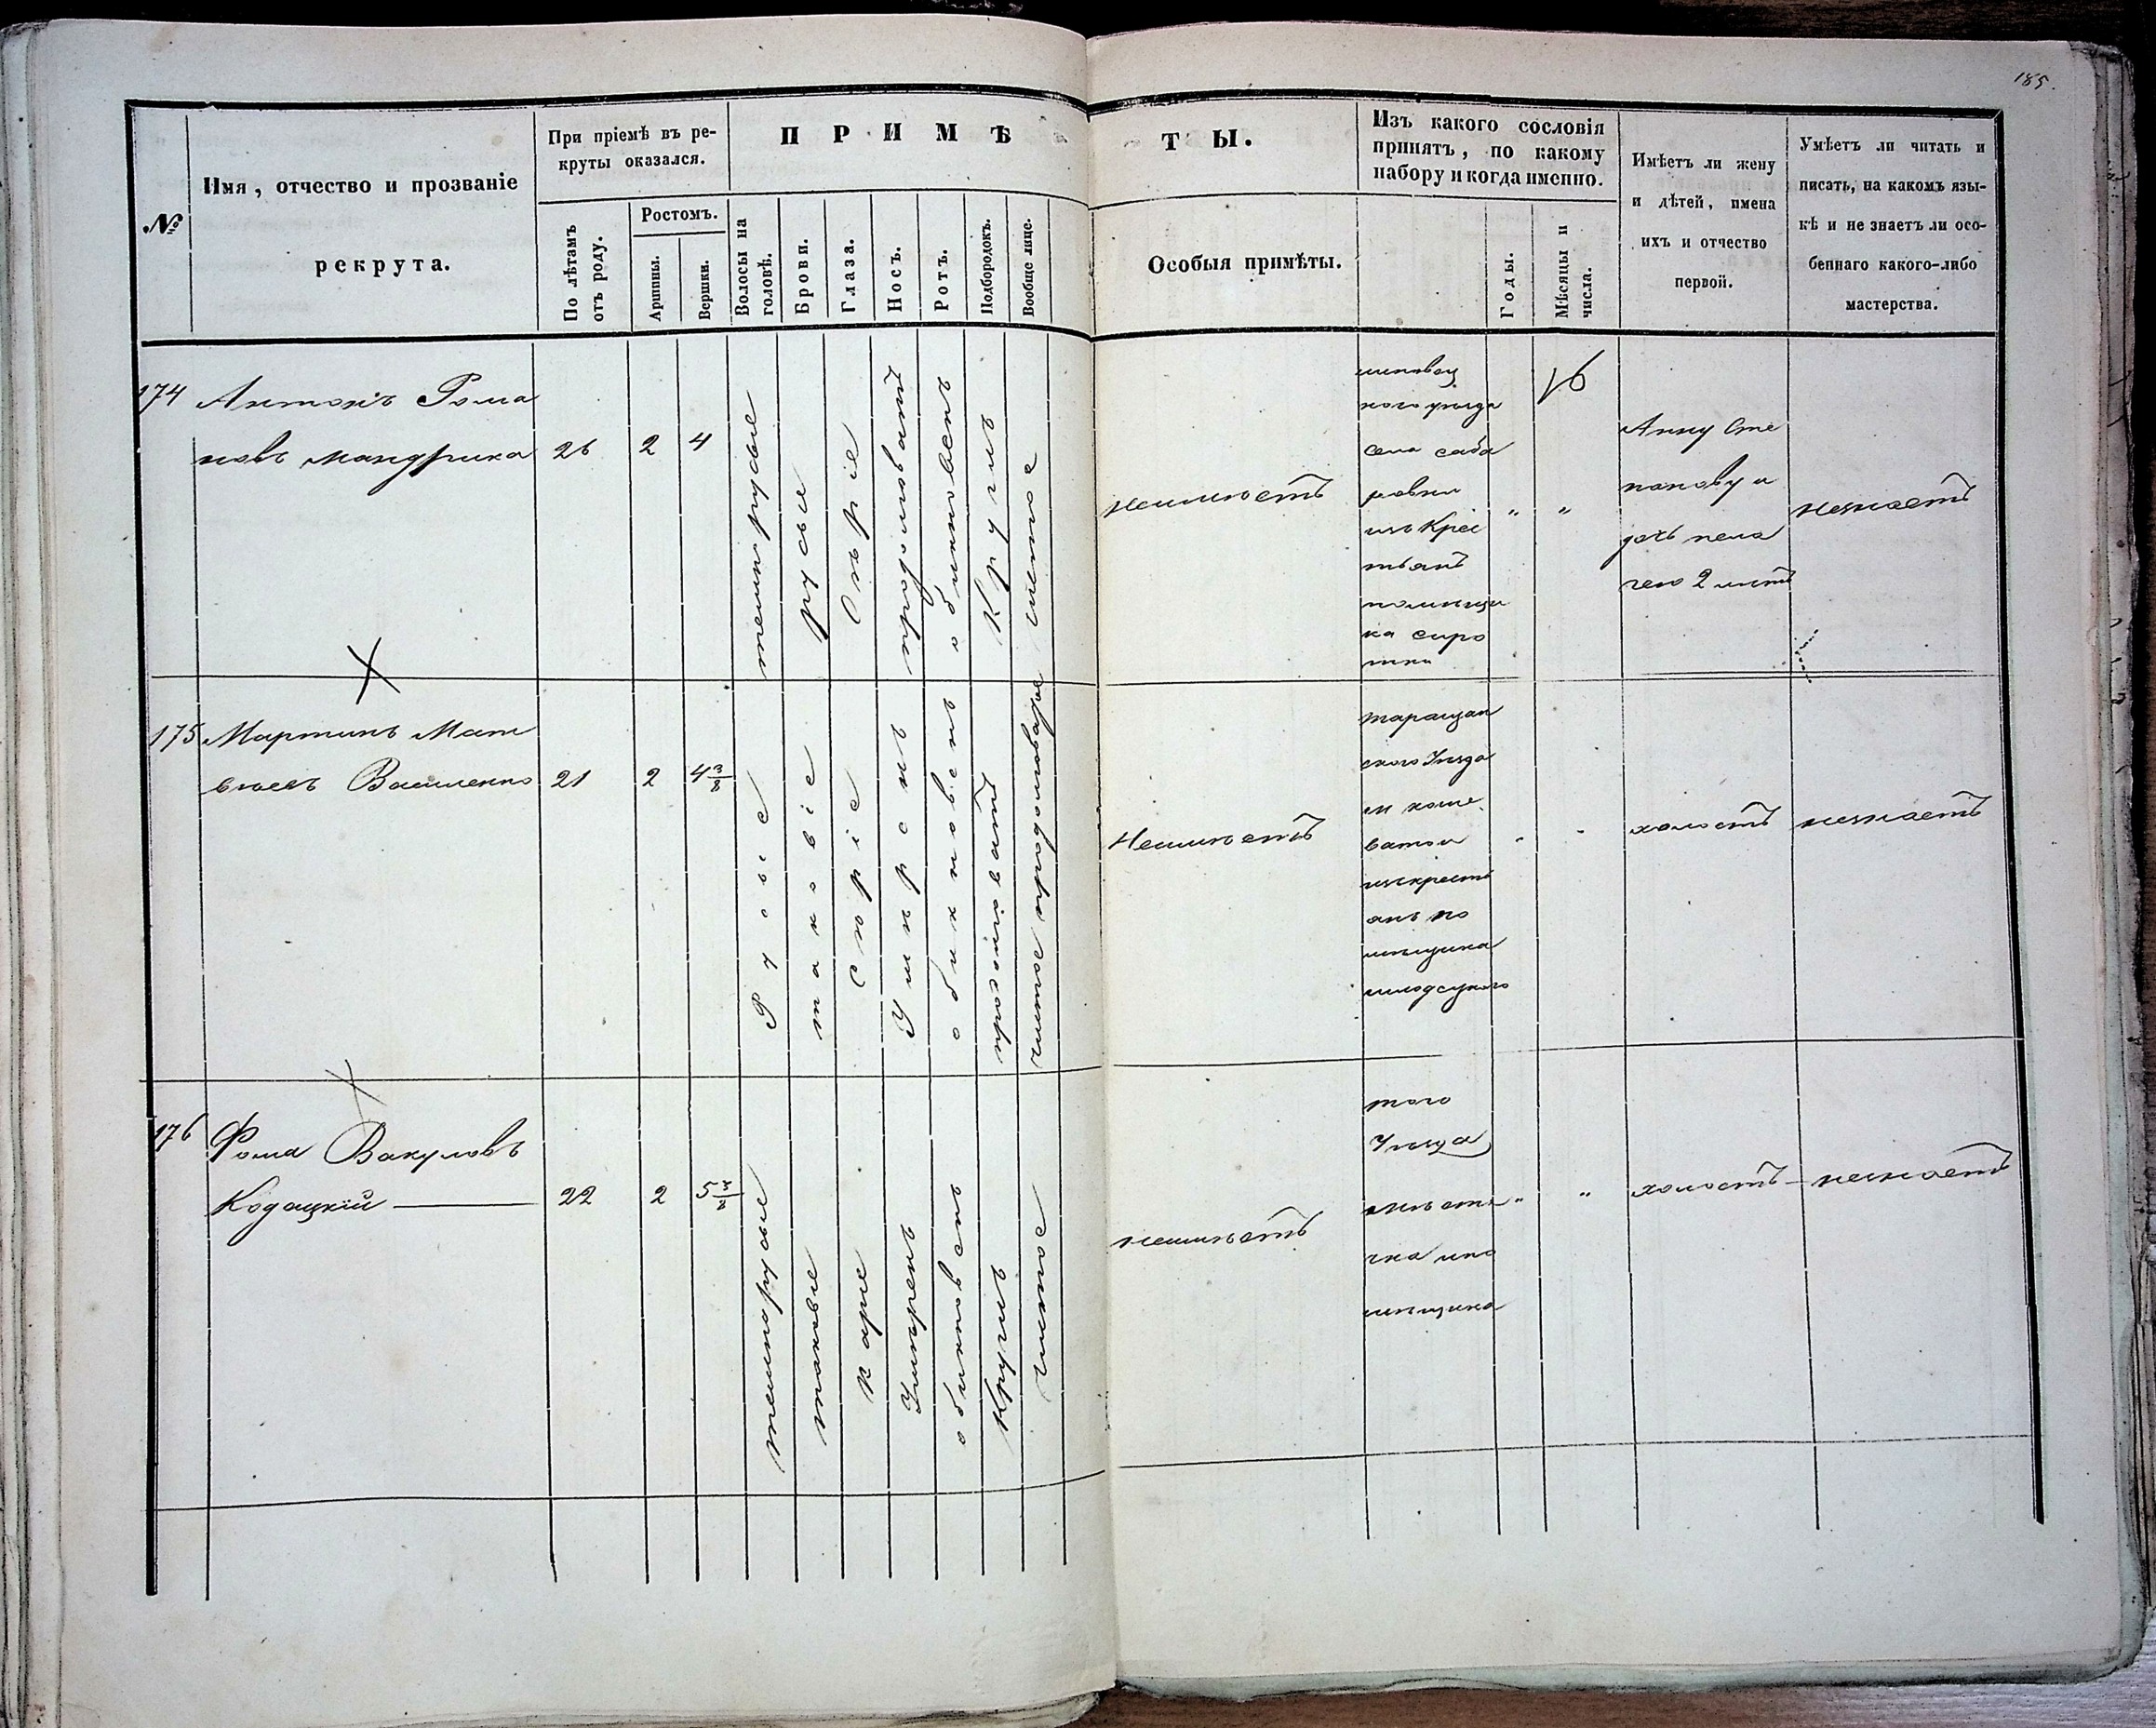 185.
№
Имя, отчество и прозваніе
рекрута.
При пріемѣ въ ре-
круты оказался.
По лѣтамъ
отъ роду.
Ростомъ.
Аршины.
Вершки.
ПРИМѢ
ТЫ.
Волосы на
головѣ.
Брови.
Глаза.
Носъ.
Ротъ.
Подбородокъ.
Вообще лице.
Особыя примѣты.
Изъ какого сословія
принятъ, по какому
набору и когда именно.
Годы.
Мѣсяцы и
числа.
Имѣетъ ли жену
и дѣтей, имена
ихъ и отчество
первой.
Умѣетъ ли читать и
писать, на какомъ язы-
кѣ и не знаетъ ли осо-
беннаго какого-либо
мастерства.
174
Антонъ Рома
новъ мандрика
26
2
4
темнорусые
русые
Сѣріе
продолговатъ
обикновенъ
Кругл
чистое
неимѣетъ
кого уезда
села саба
ровки
изъ Крес
тьянъ
помѣщи
ка сиро
тки
"
"
Анну Сте
панову и
дочь пела
гею 2 летъ
незнаетъ
175
Мартинъ Мат
вѣевъ Василенко
21
2
4 3/8
Русые
таковіе
Сѣріе
Умѣренъ
обикновенъ
продолговатое
чистое
Неимѣетъ
таращан
ского Уезда
м коше
ватои
изъкресть
янъ по
мѣщика
холостъ
незнаетъ
176
Фома Вакуловъ
Кодацкій
22
2
5 3/8
темнорусые
таковые
каріе
Умѣренъ
обикновенъ
Круглъ
чистое
неимѣетъ
того
Уезда
мѣщика
"
"
холостъ
незнаетъ